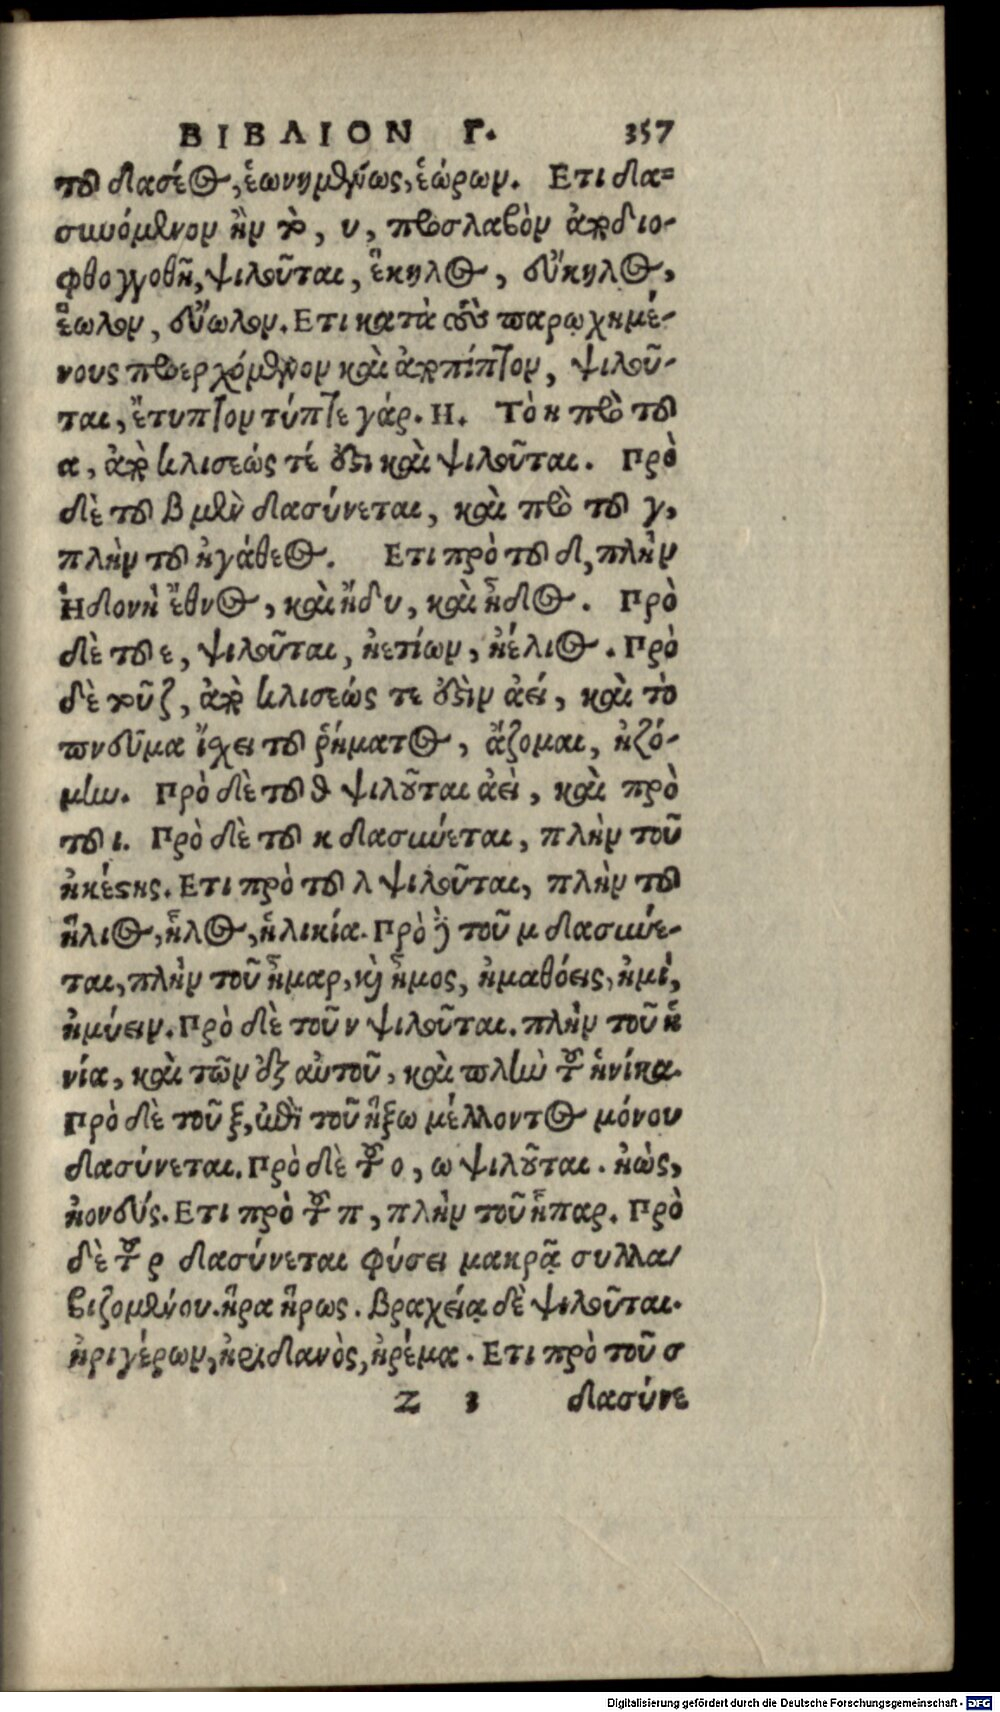 ΒΙΒΛΙΟΝ Γ. 357
τοῦ δασέος, ἑωνημένως, ἑώρων. Ετι δα=
συνόμενον ἢν τὸ, υ, προσλαβὸν παραδιο-
φθογγοθῆ, ψιλοῦται, ἕκηλος, εὔκηλος,
ἕωλον, εὔωλον. Ετι κατὰ τοὺς παρῳχημέ-
νους προερχόμενον καὶ παραπίπτον, ψιλοῦ-
ται, ἔτυπτον τύπτε γάρ. Η. Τὸ η πρὸ τοῦ
α, παρὰ κλισεώς τέ ἐστι καὶ ψιλοῦται. Πρὸ
δὲ τοῦ β μὲν δασύνεται, καὶ πρὸ τοῦ γ,
πλὴν τοῦ ἠγάθεος. Ετι πρὸ τοῦ δ, πλὴν
Ἠδονὴ ἔθνος, καὶ ἤδυ, καὶ ἦδος. Πρὸ
δὲ τοῦ ε, ψιλοῦται, ἠετίων, ἠέλιος. Πρὸ
δὲ τοῦ ζ, παρὰ κλισεώς τε ἐστὶν ἀεί, καὶ τὸ
πνεῦμα ἴχει τοῦ ῥήματος, ἅζομαι, ἡζό-
μην. Πρὸ δὲ τοῦ θ ψιλοῦται ἀεὶ, καὶ πρὸ
τοῦ ι. Πρὸ δὲ τοῦ κ δασύνεται, πλὴν τοῦ
ἠκέστης. Ετι πρὸ τοῦ λ ψιλοῦται, πλὴν τοῦ
ἥλιος, ἧλος, ἡλικία. Πρὸ δὲ τοῦ μ δασύνε-
ται, πλὴν τοῦ ἦμαρ, καὶ ἦμος, ἠμαθόεις, ἠμί,
ἠμύειν. Πρὸ δὲ τοῦ ν ψιλοῦται. πλὴν τοῦ ἡ
νία, καὶ τῶν ἐξ αὐτοῦ, καὶ πλὴν τοῦ ἡνίκα.
Πρὸ δὲ τοῦ ξ, ἐπὶ τοῦ ἥξω μέλλοντος μόνου
δασύνεται. Πρὸ δὲ τοῦ ο, ω ψιλοῦται. ἠὼς,
ἠονεύς. Ετι πρὸ τοῦ π, πλὴν τοῦ ἧπαρ. Πρὸ
δὲ τοῦ ρ δασύνεται φύσει μακρᾷ συλλα/
βιζομένου. ἥρα ἥρως. Βραχείᾳ δὲ ψιλοῦται.
ἠριγέρων, ἠριδανὸς, ἠρέμα. Ετι πρὸ τοῦ σ
Z 3 δασύνε
Digitalisierung gefördert durch die Deutsche Forschungsgemeinschaft - DFG